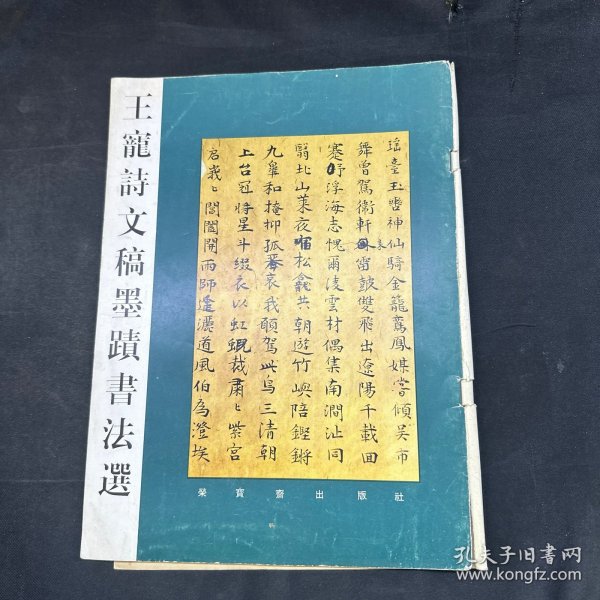 王寵詩文稿墨蹟書法選
瑶臺玉䆿神仙騎金籠鸞鳳媒嘗傾吴市
舞曾駕衛軒雷鼓雙飛出遼陽千載回
蹇予浮海志愧爾凌雲材偶集南澗沚同
翳北山萊夜宿松龕共朝遊竹嶼陪鏗鏘
九皋和掩抑孤琴哀我願駕此鳥三清朝
上台冠將星斗綴衣以虹蜺裁肅〻紫宫
啓峩〻閶闔開雨師遥灑道風伯為澄埃
榮寶齋出版社
孔夫子旧书网
www.kongfz.com